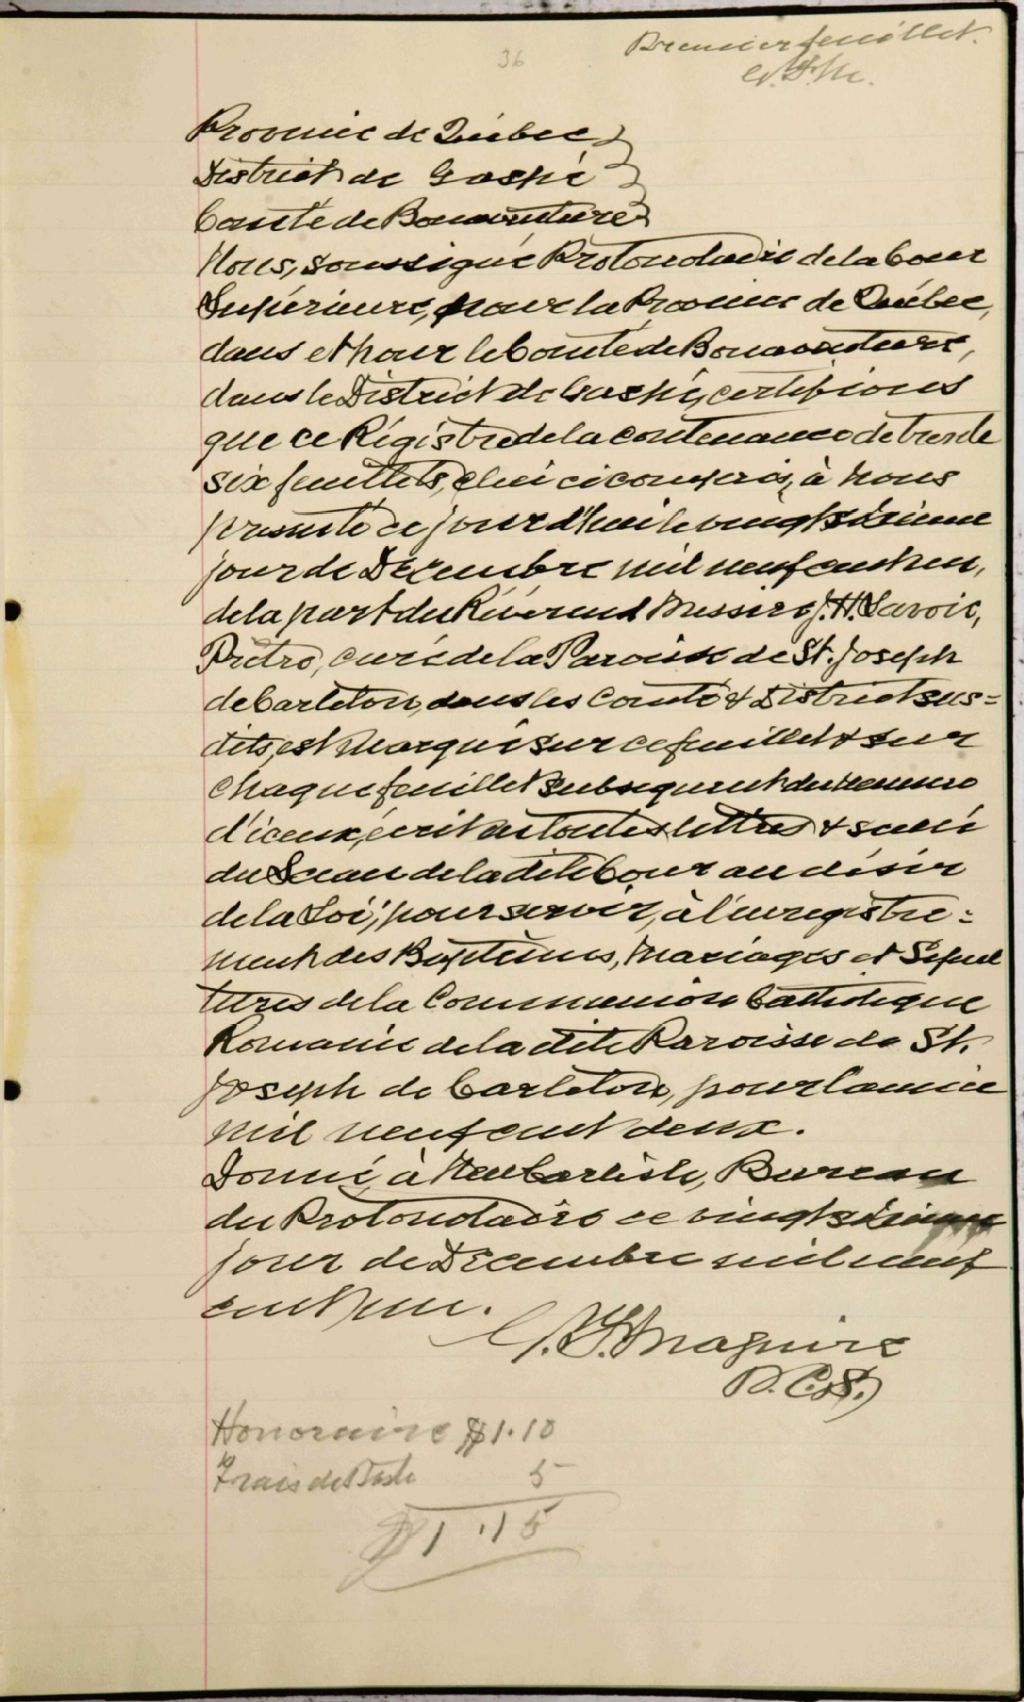 36
Premier feuillet.
Province de Québec
District de Gaspé
Comté de Bonaventure
Nous, soussigné Protonotaire de la Cour
Supérieure, pour la Province de Québec,
dans et pour le Comté de Bonaventure,
dans le District de Gaspé, certifions
que ce Régistre de la contenance de trente
six feuillets, celui ci compris, à nous
présenté ce jourd'hui le vingt sixieme
jour de Décembre mil neuf cent un,
de la part du Révérend Messire J. H. Lavoie,
Prêtre, curé de la Paroisse de St. Joseph
de Carleton, dans les Comté & District sus=
dits, est marqué sur ce feuillet & sur
chaque feuillet subsequent du numéro
d'iceux, écrit en toutes lettres & scellé
du Sceau de la dite Cour au désir
de la Loi, pour servir, à l'enregistre=
ment des Baptêmes, Mariages et Sépul
tures de la Communion Catholique
Romaine de la dite Paroisse de St.
Joseph de Carleton, pour l'année
mil neuf cent deux.
Donné à New Carlisle, Bureau
du Protonotaire ce vingt sixieme
jour de Décembre mil neuf
cent un.
Maguire
P.C.S.
Honoraire $1.10
Frais de Poste 5
$1.15